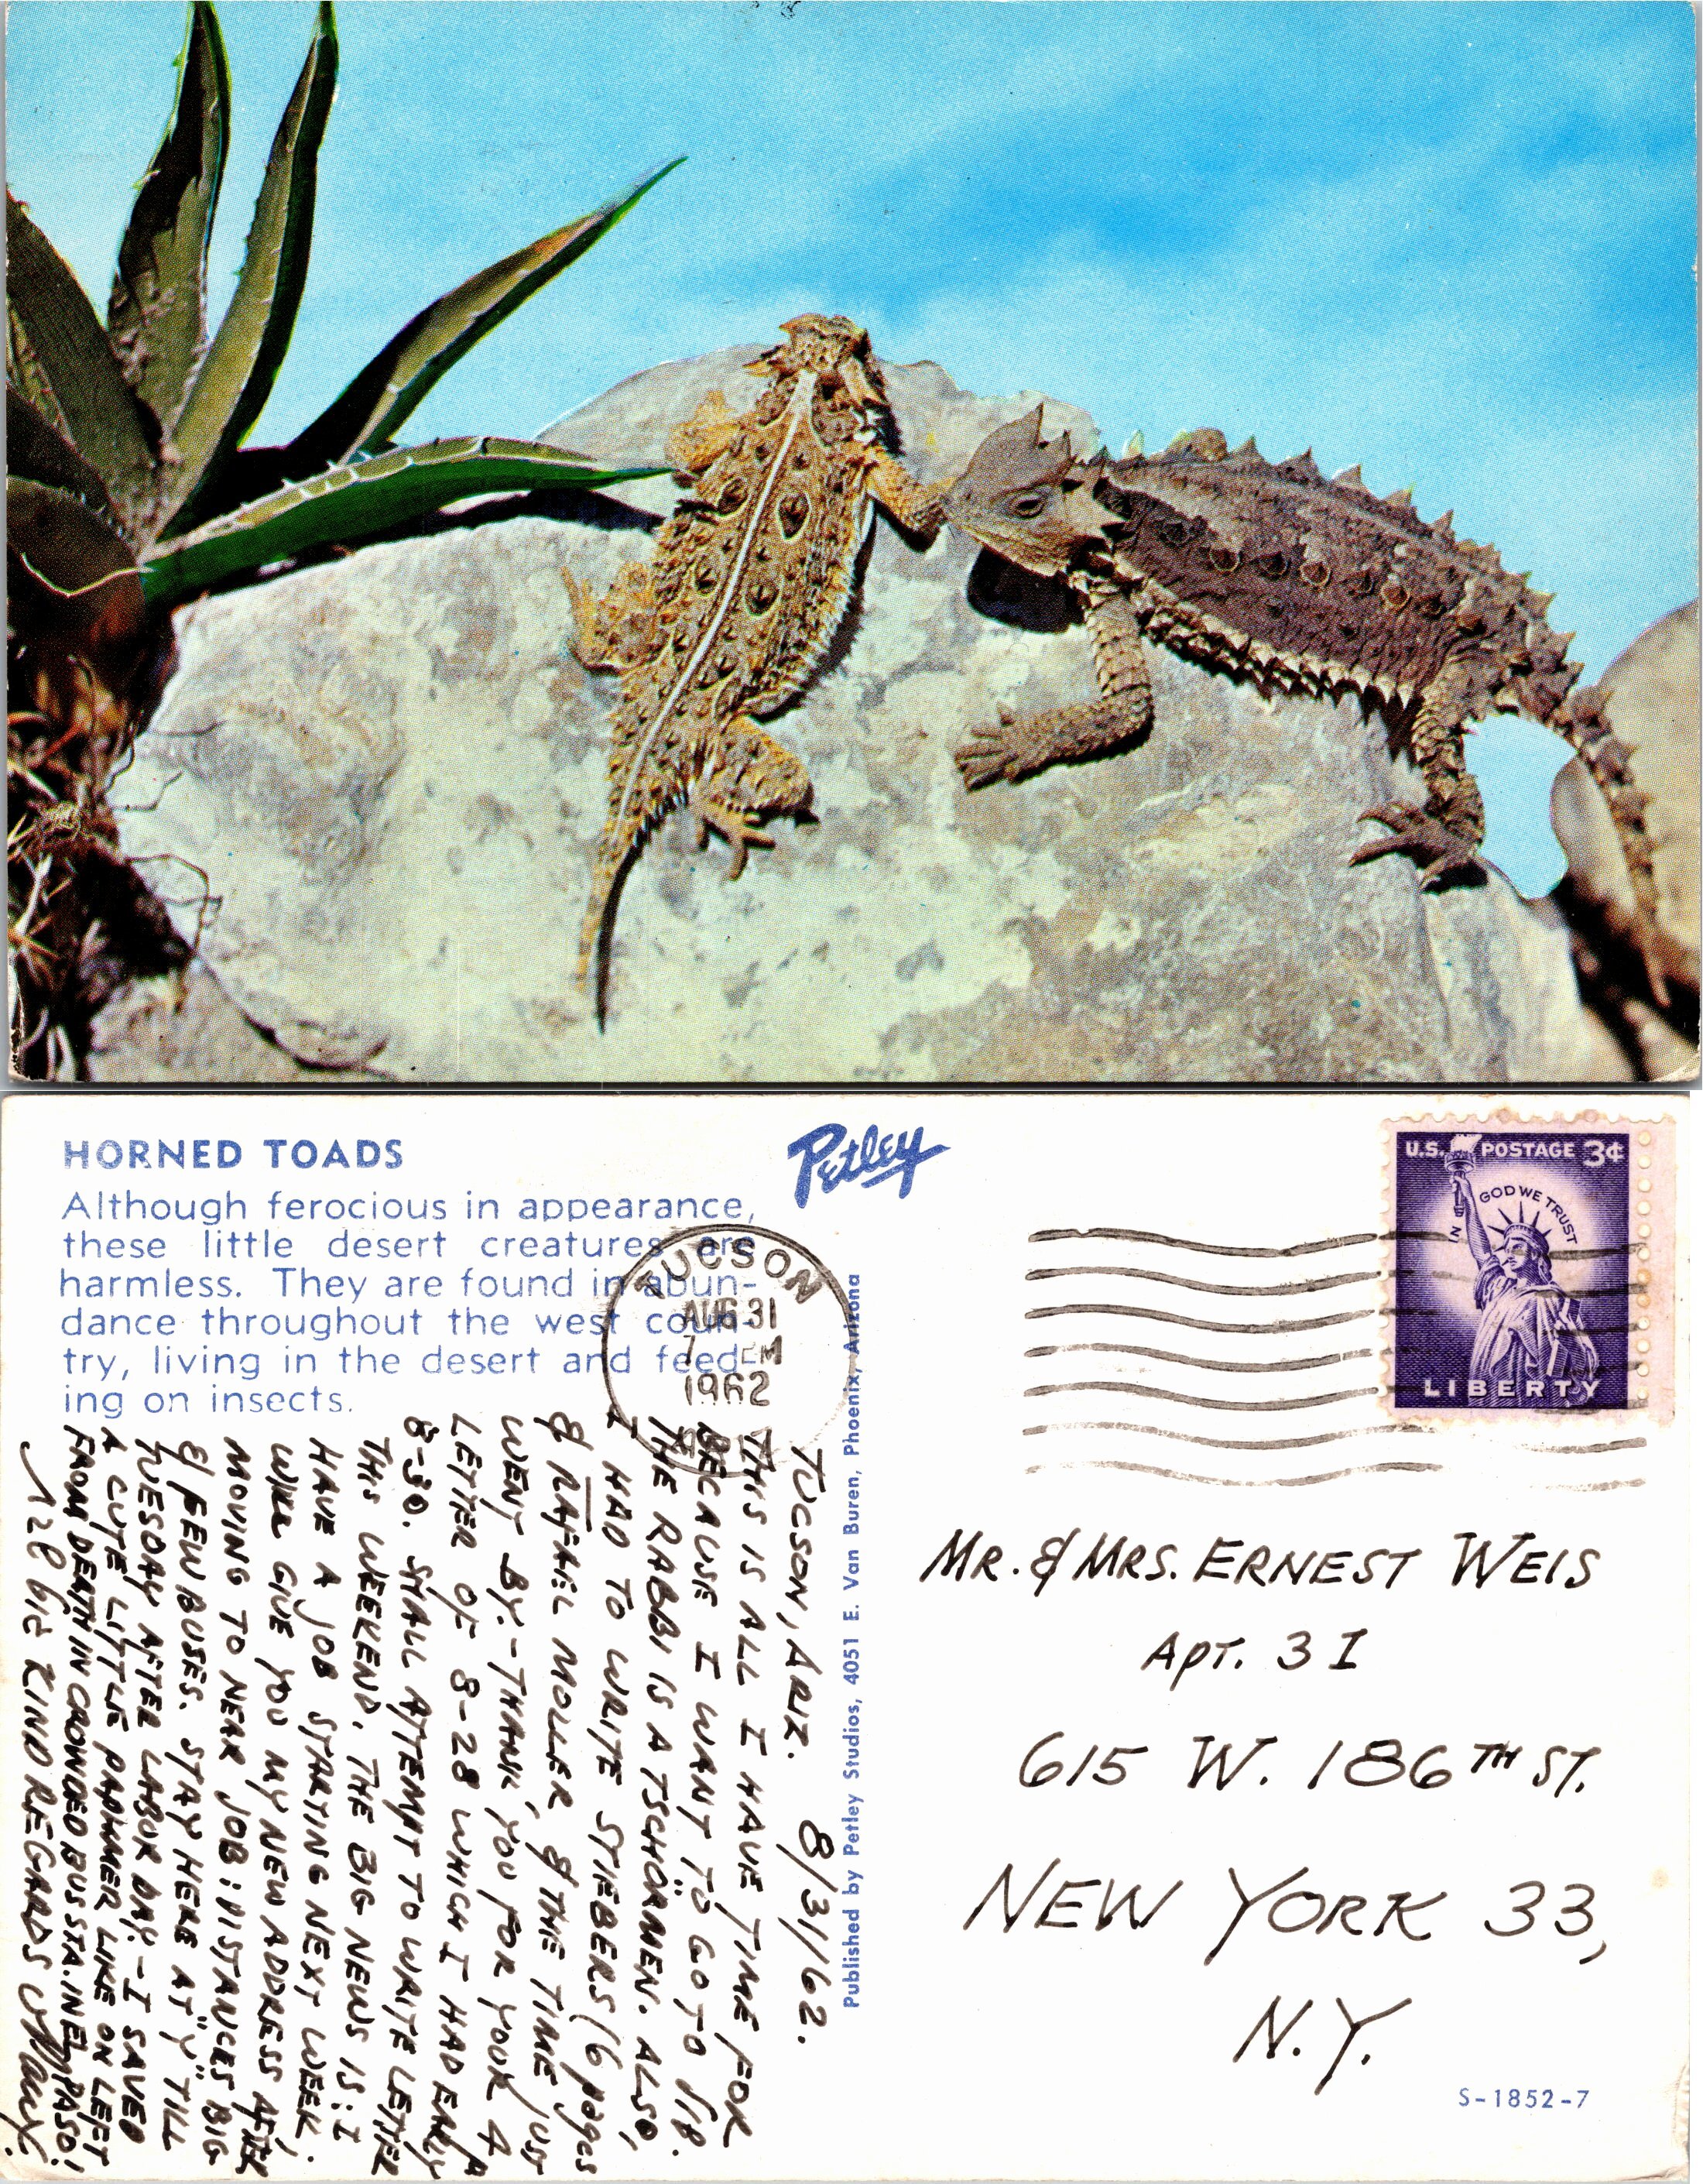 HORNED TOADS
Although ferocious in appearance,
these little desert creatures are
harmless. They are found in abun-
dance throughout the west coun-
try, living in the desert and feed-
ing on insects.
Petley
TUCSON
AUG 31
7 PM
1962
U.S. POSTAGE 3¢
IN GOD WE TRUST
LIBERTY
Published by Petley Studios, 4051 E. Van Buren, Phoenix, Arizona
TUCSON, ARIZ. 8/31/62.
THIS IS ALL I HAVE TIME FOR
BECAUSE I WANT TO GO TO
THE RABBI IS A TSCHÖRMEN. ALSO,
I HAD TO WRITE STIEBERS (6 pages
& RAFAEL MOLLER & THE TIME JUST
WENT BY. - THANK YOU FOR YOUR
LETTER OF 8-28 WHICH I HAD EARLY
8-30. SHALL ATTEMPT TO WRITE LETTER
THIS WEEKEND. THE BIG NEWS IS: I
HAVE A JOB STARTING NEXT WEEK.
WILL GIVE YOU MY NEW ADDRESS AFTER
MOVING TO NEAR JOB: DISTANCES BIG
& FEW BUSES. STAY HERE AT "Y" TILL
TUESDAY AFTER LABOR DAY. - I SAVED
A CUTE LITTLE PAMMER LIKE ON LEFT
FROM DEATH IN CROWDED BUS STA. IN EL PASO!
KIND REGARDS
MR. & MRS. ERNEST WEIS
APT. 3 I
615 W. 186TH ST.
NEW YORK 33,
N.Y.
S-1852-7